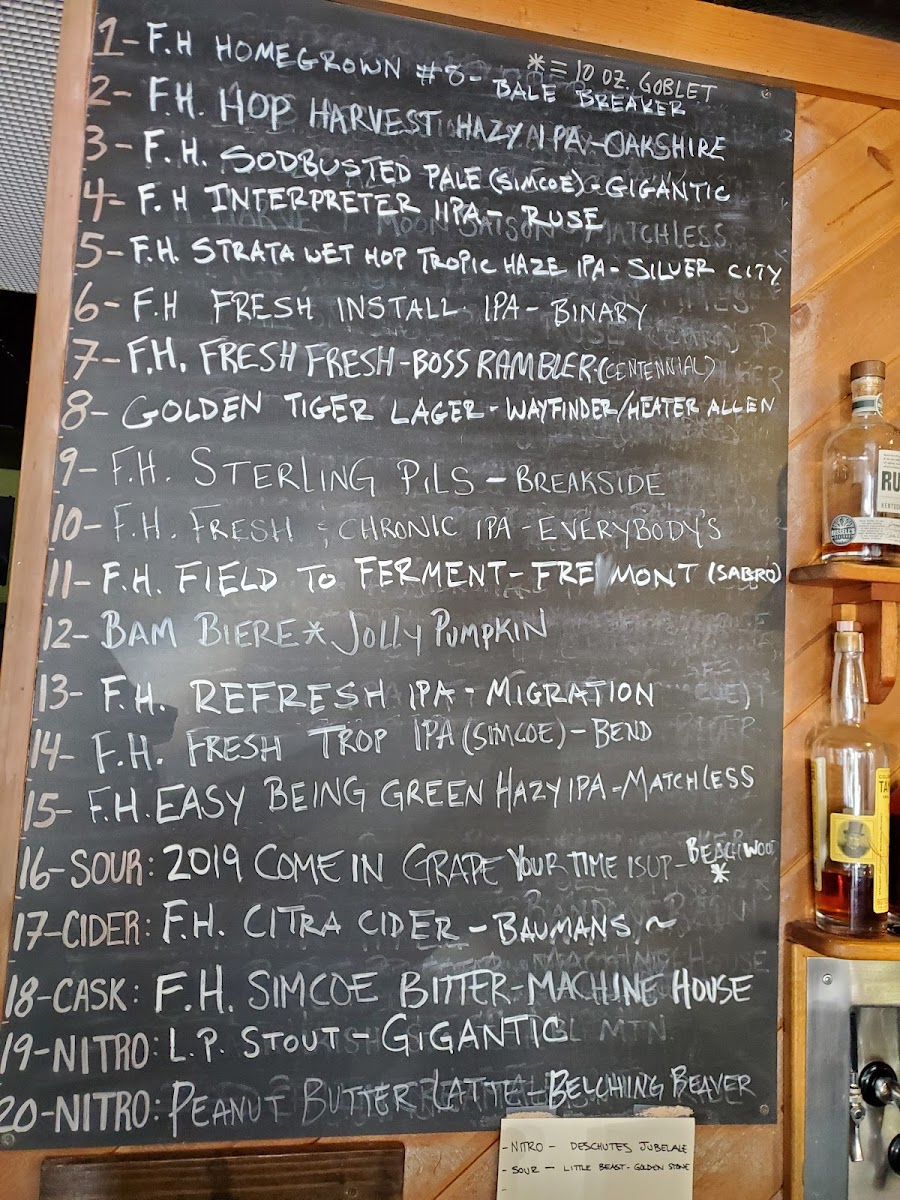 * = 10 OZ. GOBLET
1- F.H HOMEGROWN #8- BALE BREAKER
2- F.H. HOP HARVEST HAZY IPA-OAKSHIRE
3- F.H. SODBUSTED PALE (SIMCOE)-GIGANTIC
4- F.H INTERPRETER IIPA- RUSE
5- F.H. STRATA WET HOP TROPIC HAZE IPA- SILVER CITY
6- F.H FRESH INSTALL IPA- BINARY
7- F.H. FRESH FRESH-BOSS RAMBLER (CENTENNIAL)
8- GOLDEN TIGER LAGER-WAYFINDER/HEATER ALLEN
9- F.H. STERLING PILS - BREAKSIDE
10- F.H. FRESH & CHRONIC IPA-EVERYBODY'S
11- F.H. FIELD TO FERMENT- FREMONT (SABRO)
12- BAM BIERE* JOLLY PUMPKIN
13- F.H. REFRESH IPA-MIGRATION
14- F.H. FRESH TROP IPA (SIMCOE)- BEND
15- F.H. EASY BEING GREEN HAZY IPA-MATCHLESS
16-SOUR: 2019 COME IN GRAPE YOUR TIME IS UP- BEACHWOOD *
17-CIDER: F.H. CITRA CIDER - BAUMANS ~
18-CASK: F.H. SIMCOE BITTER-MACHINE HOUSE
19-NITRO: L.P. STOUT - GIGANTIC
20-NITRO: PEANUT BUTTER LATTE BELCHING BEAVER
-NITRO- DESCHUTES JUBELALE
-SOUR- LITTLE BEAST-GOLDEN STONE
-
RU
KENTUCKY
TA